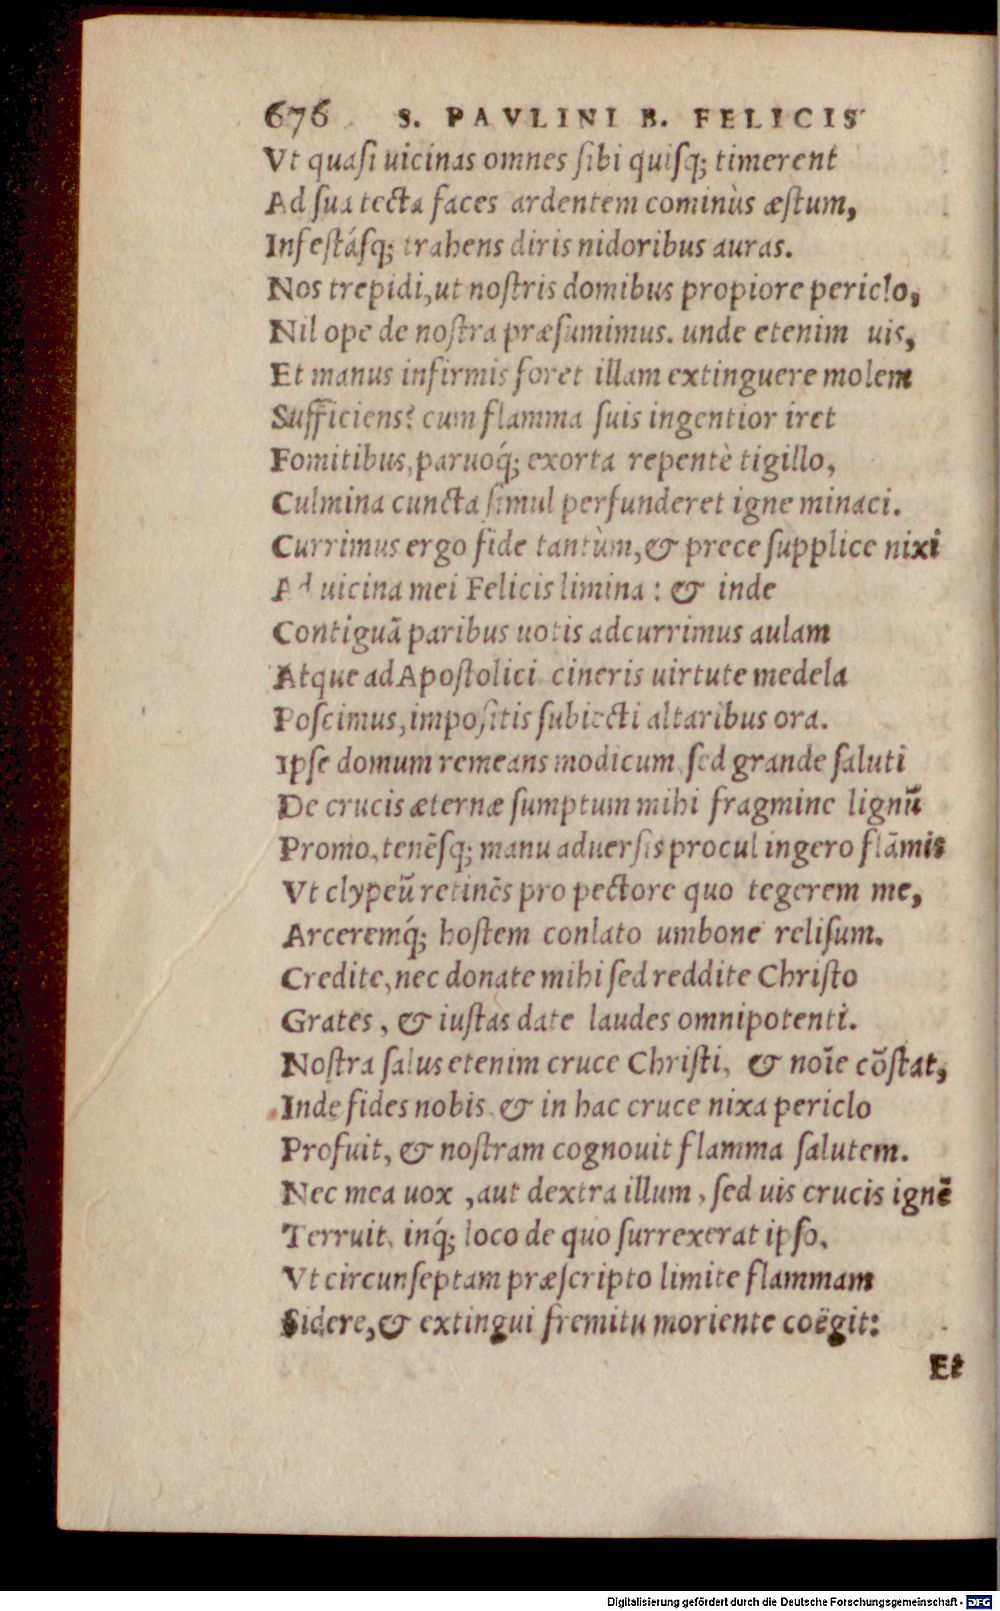 676 S. PAVLINI B. FELICIS
Vt quasi uicinas omnes sibi quisq; timerent
Ad sua tecta faces ardentem cominùs æstum,
Infestásq; trahens diris nidoribus auras.
Nos trepidi, ut nostris domibus propiore periclo,
Nil ope de nostra præsumimus. unde etenim uis,
Et manus infirmis foret illam extinguere molem
Sufficiens? cum flamma suis ingentior iret
Fomitibus, paruoq́; exorta repentè tigillo,
Culmina cuncta simul perfunderet igne minaci.
Currimus ergo fide tantùm, & prece supplice nixi
Ad uicina mei Felicis limina: & inde
Contiguã paribus uotis adcurrimus aulam
Atque ad Apostolici cineris uirtute medela
Poscimus, impositis subiecti altaribus ora.
Ipse domum remeans modicum sed grande saluti
De crucis æternæ sumptum mihi fragmine lignũ
Promo, tenẽsq; manu aduersis procul ingero flãmis
Vt clypeũ retinẽs pro pectore quo tegerem me,
Arceremq́; hostem conlato umbone relisum.
Credite, nec donate mihi sed reddite Christo
Grates, & iustas date laudes omnipotenti.
Nostra salus etenim cruce Christi, & noĩe cõstat,
Inde fides nobis & in hac cruce nixa periclo
Profuit, & nostram cognouit flamma salutem.
Nec mea uox, aut dextra illum, sed uis crucis ignẽ
Terruit, inq́; loco de quo surrexerat ipso,
Vt circunseptam præscripto limite flammam
Sidere, & extingui fremitu moriente coëgit:
Et
Digitalisierung gefördert durch die Deutsche Forschungsgemeinschaft - DFG